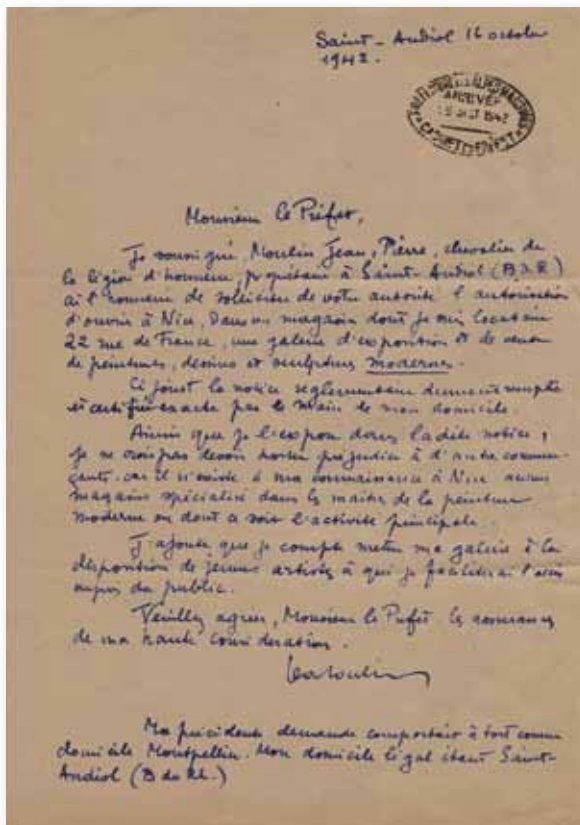 Saint-Andiol 16 octobre
1942.
PREFECTURE DES ALPES MARITIMES
ARRIVÉE
OCT 1942
CABINET DU PREFET
Monsieur le Préfet,
Je soussigné, Moulin Jean, Pierre, chevalier de
la légion d'honneur, propriétaire à Saint-Andiol (B.d.R)
ai l'honneur de solliciter de votre autorité l'autorisation
d'ouvrir à Nice, dans un magasin dont je suis locataire
22 rue de France, une galerie d'exposition et de vente
de peintures, dessins et sculptures modernes.
Ci joint la notice réglementaire dument remplie
et certifiée exacte par le Maire de mon domicile.
Ainsi que je l'expose dans ladite notice,
je ne crois pas devoir porter préjudice à d'autres commer-
çants car il n'existe à ma connaissance à Nice aucun
magasin spécialisé dans les maîtres de la peinture
moderne ou dont ce soit l'activité principale.
J'ajoute que je compte mettre ma galerie à la
disposition de jeunes artistes à qui je faciliterai l'accès
auprès du public.
Veuillez agréer, Monsieur le Préfet les assurances
de ma haute considération.
Ma précédente demande comportait à tort comme
domicile Montpellier. Mon domicile légal étant Saint-
Andiol (B du Rh.)